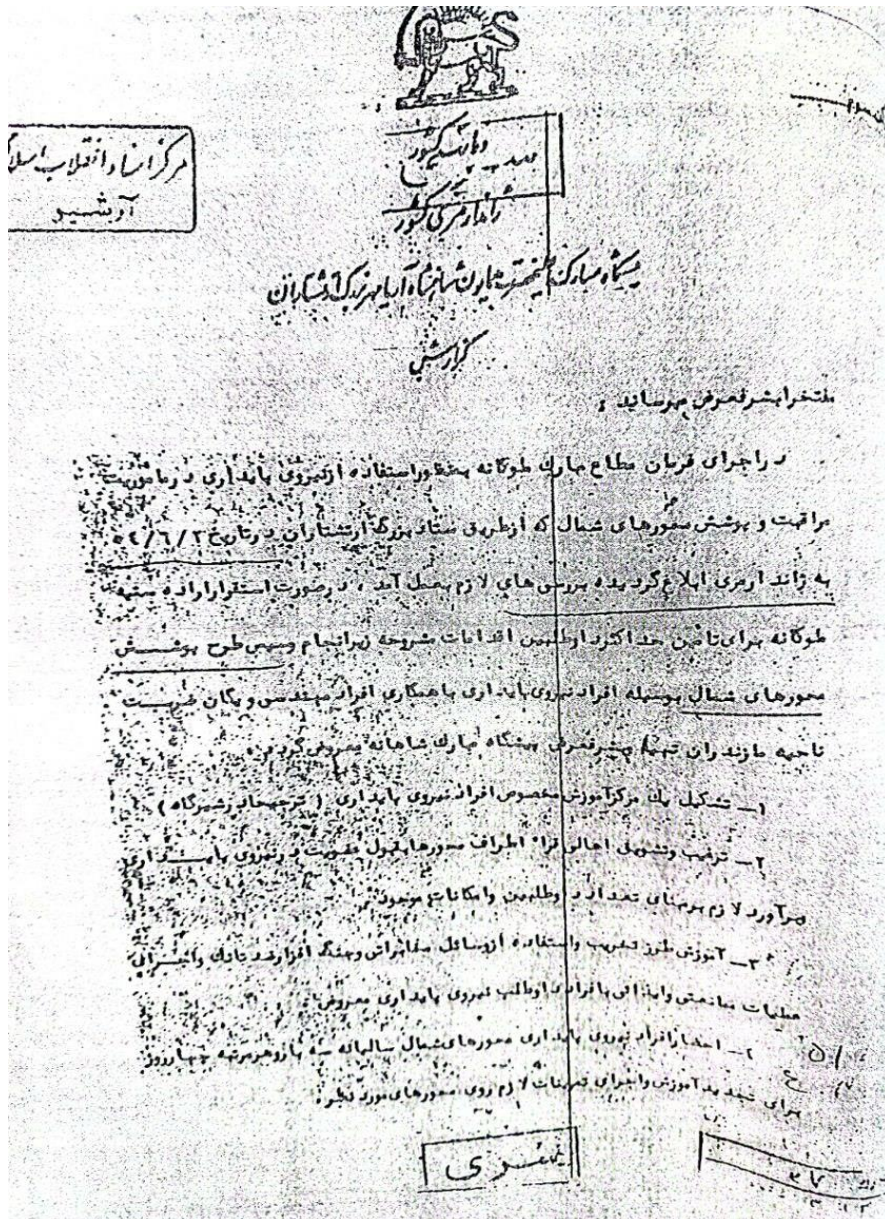 مرکز اسناد انقلاب اسلا
آرشیو
ژاندارمری کشور
پیشگاه مبارک اعلیحضرت همایون شاهنشاه آریامهر بزرگ ارتشتاران
گزارش
مفتخرا بشرفعرض میرساند :
در اجرای فرمان مطاع مبارک ملوکانه بمنظور استفاده از نیروی پایداری در ماموریت
مراقبت و پوشش محورهای شمال که از طریق ستاد بزرگ ارتشتاران در تاریخ ۵۲/۶/۲
به ژاندارمری ابلاغ گردیده بررسی های لازم بعمل آمد ، در صورت استقرار اراده سنیه
ملوکانه برای تامین حداکثر داوطلبین اقدامات مشروحه زیر انجام و سپس طرح پوشش
محورهای شمال بوسیله افراد نیروی پایداری با همکاری افراد مهندسی و یگان ضربت
ناحیه مازندران تهیه و بشرفعرض پیشگاه مبارک شاهانه معروض گردد .
۱ـ تشکیل یک مرکز آموزش مخصوص افراد نیروی پایداری ( ترجیحا در شیرگاه )
۲ـ ترغیب و تشویق اهالی قراء اطراف محورها بقبول عضویت در نیروی پایداری
برآورد لازم بر مبنای تعداد داوطلبین و امکانات موجود .
۳ـ آموزش طرز تخریب و استفاده از وسائل مخابراتی و جنگ افزار ضد تانک و اجرای
عملیات ممانعتی و ایذائی با افراد داوطلب نیروی پایداری معروض .
۴ـ احضار افراد نیروی پایداری محورهای شمال سالیانه سه بار و هر مرتبه چهار روز
برای تجدید آموزش و اجرای تمرینات لازم روی محورهای مورد نظر .
سری